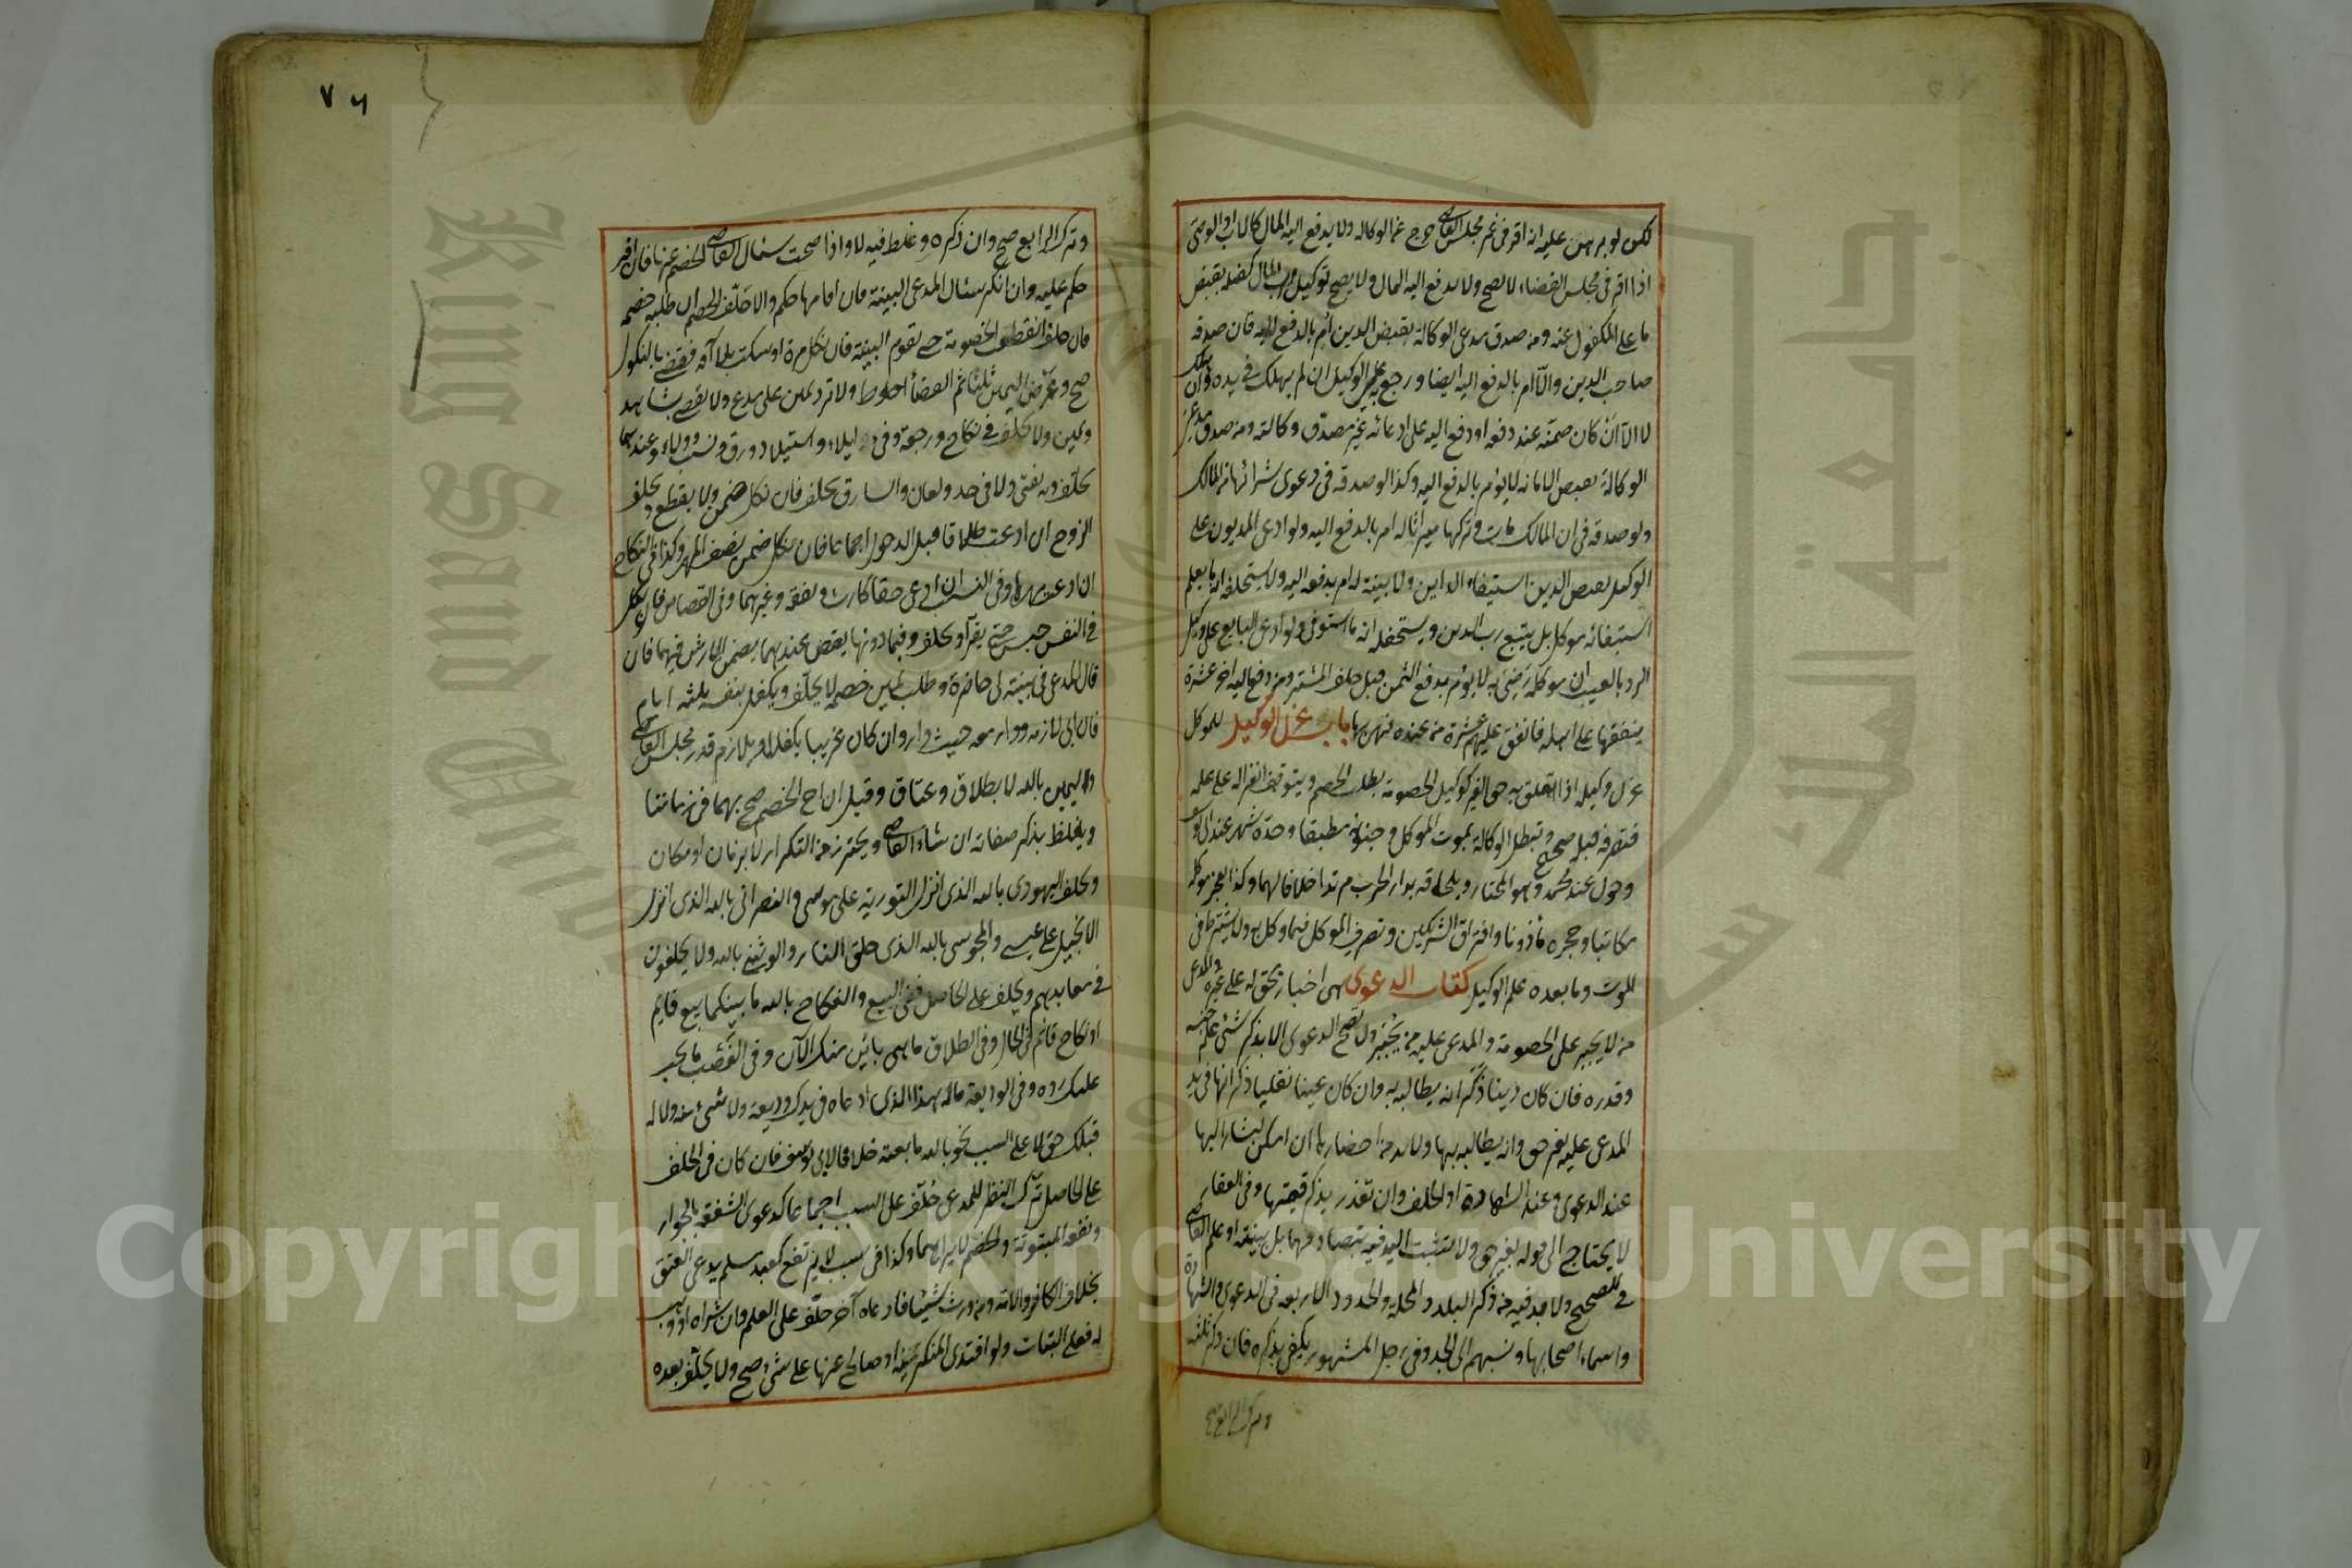 لكن لو برهن عليه انه اقر فى غير مجلس القاضى خرج عن الوكالة ولا يدفع اليه المال كالاب والوصى
اذا اقر فى مجلس القضاء لا يصح ولا يدفع اليه المال ولا يصح توكيل رب المال كفيله بقبض
ما على المكفول عنه ومن صدق مدعى الوكالة بقبض الدين امر بالدفع اليه فان صدقه
صاحب الدين والا امر بالدفع اليه ايضا ورجع به على الوكيل ان لم يهلك فى يده وان هلك
لا الا ان كان ضمنه عند دفعه او دفع اليه على ادعائه غير مصدق وكالته ومن صدق مدعى
الوكالة بقبض الامانة لا يؤمر بالدفع اليه وكذا لو صدقه فى دعوى شرائها من المالك
ولو صدقه فى ان المالك مات وتركها ميراثا له امر بالدفع اليه ولو ادعى المديون على
الوكيل بقبض الدين استيفاء الداين ولا بينة له امر بدفعه اليه ولا يستحلف انه ما يعلم
استيفائه موكله بل يتبع رب الدين ويستحلفه انه ما استوفى ولو ادعى البايع على وكيل
الرد بالعيب ان موكله رضى به لا يؤمر بدفع الثمن قبل حلف المشترى ومن دفع اليه اخر عشرة
ينفقها على اهله فانفق عليهم عشرة من عنده فهى بها باب عزل الوكيل للموكل
عزل وكيله الا اذا تعلق به حق الغير كوكيل الخصومة بطلب الخصم ويتوقف انعزاله على علمه
فتصرفه قبله صحيح وتبطل الوكالة بموت الموكل وجنونه مطبقا وحده شهر عند ابى يوسف
وحول عند محمد وهو المختار وبلحاقه بدار الحرب مرتدا خلافا لهما وكذا بعجز موكله
مكاتبا وحجره مأذونا وافتراق الشريكين وتصرف الموكل فيما وكل به ولا يشترط فى
الموت وما بعده علم الوكيل كتاب الدعوى هى اخبار بحق له على غيره والمدعى
من لا يجبر على الخصومة والمدعى عليه من يجبر ولا تصح الدعوى الا بذكر شئ علم جنسه
وقدره فان كان دينا ذكر انه يطالبه به وان كان عينا نقليا ذكر انها فى يد
المدعى عليه بغير حق وانه يطالبه بها ولا بد من احضارها ان امكن ليشار اليها
عند الدعوى وعند الشهادة او الحلف وان تعذر يذكر قيمتها وفى العقار
لا يحتاج الى قوله بغير حق ولا تثبت اليد فيه بتصادقهما بل ببينة او علم القاضى
فى الصحيح ولا بد فيه من ذكر البلد والمحلة والحدود الاربعة فى الدعوى والشهادة
واسماء اصحابها ونسبهم الى الجد وفى رجل المشهور يكفى بذكره فان ذكر ثلثة
وترك الرابع صح
٧٦
وترك الرابع صح وان ذكره وغلط فيه لا واذا صحت سئال القاضى الخصم عنها فان اقر
حكم عليه وان انكر سئال المدعى البينة فان اقامها حكم والا حلف الخصم ان طلبه خصمه
فان حلف انقطعت الخصومة حتى تقوم البينة فان نكل مرة او سكت بلا آفة فقضى بالنكول
صح وعرض اليمين ثلثا ثم القضأ احوط ولا ترد يمين على مدع ولا نقضى بشاهد
ويمين ولا يحلف فى نكاح ورجعة وفئ ايلاء واستيلاد ورق ونسب وولاء وعندهما
يحلف وبه يفتى ولا فى حد ولعان والسارق يحلف فان نكل ضمن ولا يقطع ويحلف
الزوج ان ادعت طلاقا قبل الدخول اجماعا فان نكل ضمن نصف المهر وكذا فى النكاح
ان ادعت مهرها وفى النسب ان ادعى حقا كارث ونفقة وغيرهما وفى القصاص فان نكل
فى النفس حبس حتى يقر او يحلف وفيما دونها يقتص وعندهما يضمن الارش فيهما فان
قال المدعى فى بينة لى حاضرة وطلب يمين خصمه لا يحلف ويكفل بنفسه ثلثة ايام
فان ابى لازمه ودار معه حيث دار وان كان غريبا يكفل او يلازم قدر مجلس القاضى
واليمين بالله لا بطلاق وعتاق وقيل ان الح الخصم صح بهما فى زماننا
ويغلظ بذكر صفاته ان شاء القاضى ويحترز عن التكرار لا بزمان او مكان
ويحلف اليهودى بالله الذى انزل التورية على موسى والنصرانى بالله الذى انزل
الانجيل على عيسى والمجوسى بالله الذى خلق النار والوثنى بالله ولا يحلفون
فى معابدهم ويحلف على الحاصل ففى البيع والنكاح بالله ما بينكما بيع قايم
او نكاح قائم فى الحال وفى الطلاق ما هى باين منك الآن وفى الغصب ما يجب
عليك رده وفى الوديعة ماله هذا الذى ادعاه فى يدك وديعة ولا شئ منه ولا له
قبلك حق لا على السبب نحو بالله ما بعته خلافا لابى يوسف فان كان فى الحلف
على الحاصل ترك النظر للمدعى حلف على السبب اجماعا كدعوى الشفعة بالجوار
ونفقة المبتوتة والخصم لا يراهما وكذا فى سبب لا يرتفع كعبد مسلم يدعى العتق
بخلاف الكافر والامة ومن ورث شيئا فادعاه آخر حلف على العلم وان شراه او وهب
له فعلى البتات ولو افتدى المنكر يمينه او صالح عنها على شئ صح ولا يحلف بعده